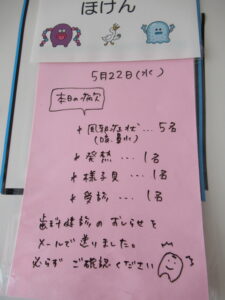 ほけん
5月22日(水)
本日の病欠
風邪症状…5名
(咳・鼻水)
発熱…1名
様子見…1名
受診…1名
歯科健診のおしらせを
メールで送りました。
必らずご確認ください